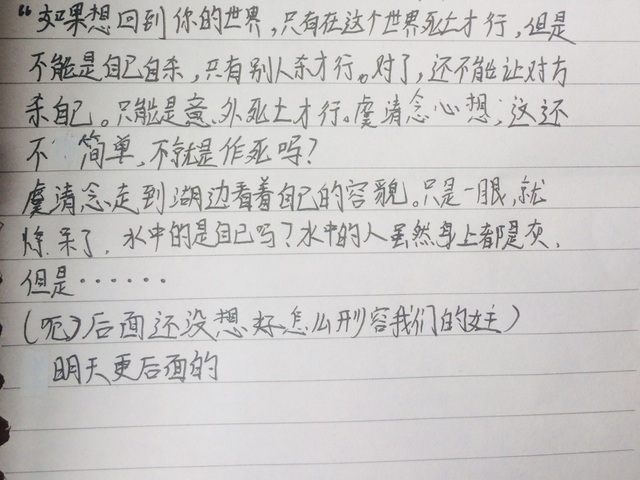 “如果想回到你的世界,只有在这个世界死亡才行,但是
不能是自己自杀,只有别人杀才行。对了,还不能让对方
杀自己。只能是意外死亡才行。虞清念心想,这还
不 简单,不就是作死吗?
虞清念走到湖边看着自己的容貌。只是一眼,就
惊呆了.水中的是自己吗?水中的人虽然身上都是灰,
但是……
(呃)后面还没想好怎么形容我们的女主)
明天更后面的